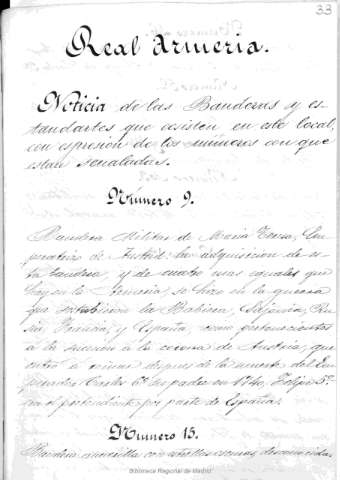 33
Real Armeria.
Noticia de las Banderas y es-
tandartes que ecsisten en este local,
con espresion de los numeros con que
estan señalados.
Número 9.
Bandera Militar de Maria Teresa, Em-
peratriz de Austria: la adquisicion de es-
ta bandera, y de cuatro mas iguales que
hay en la Armeria, se hizo en la guerra
que la Babiera,
y España, como pretendientes
á la sucesion á la corona de Austria, que
entró á reinar despues de la muerte del Em-
perador Carlos 6º su padre en 1740. Felipe 5º
era el pretendiente por parte de España.
Número 15.
Bandera amarilla con
Biblioteca Regional de Madrid